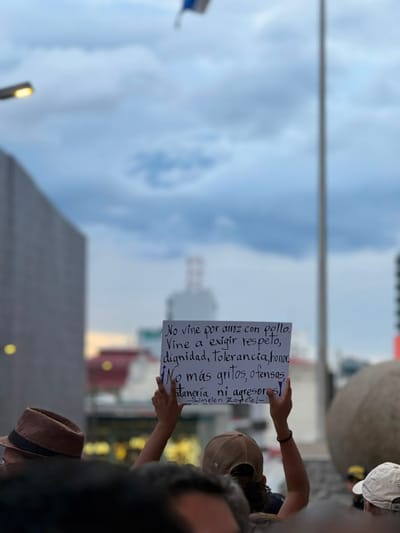 No vine por arroz con pollo
Vine a exigir respeto,
dignidad, tolerancia, honor
¡No más gritos, ofensas,
ni agresores!